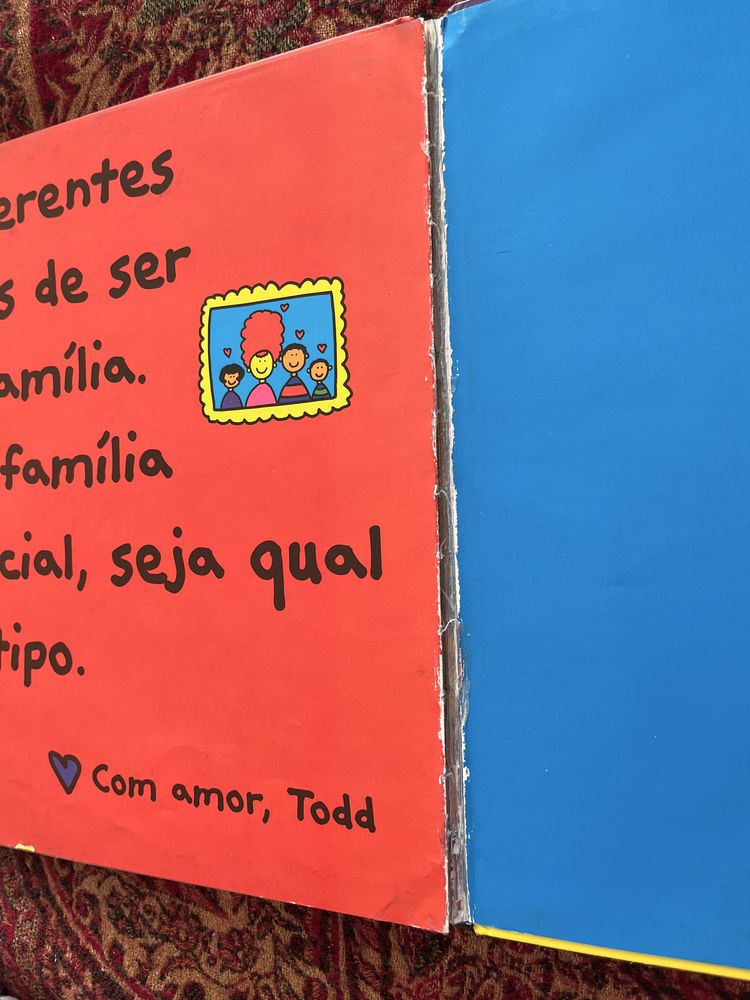 erentes
s de ser
amília.
família
cial, seja qual
tipo.
Com amor, Todd